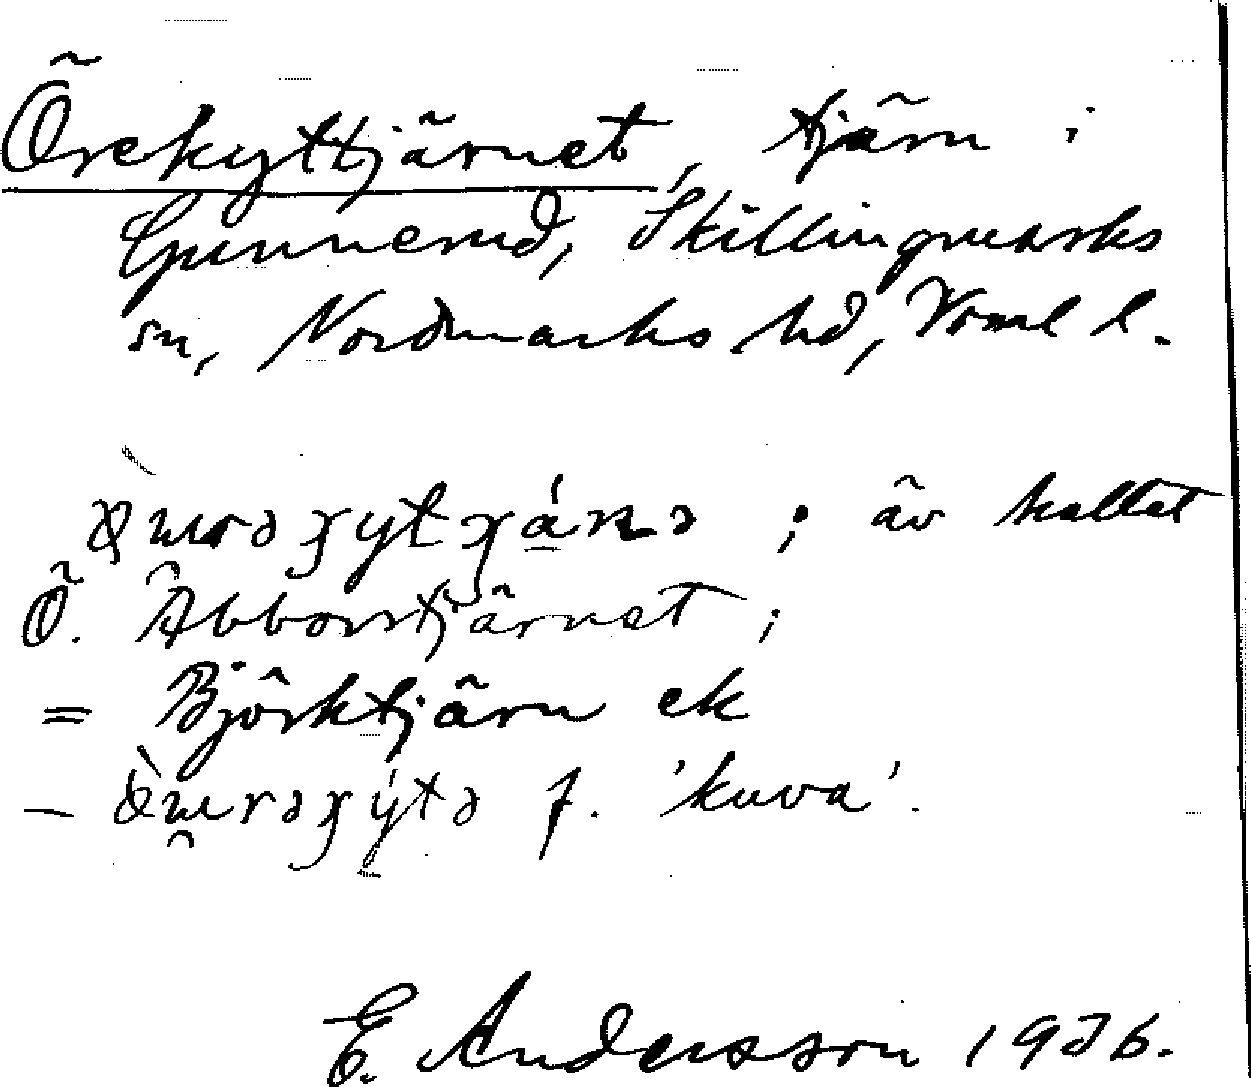 Örekyttjärnet, tjärn i
Gunnerud, Skillingmarks
sn, Nordmarks hd, Vrml l.
; äv kallat
Ö. Åbborrtjärnet ;
= Björktjärn ek
— f. 'kuva'.
E. Andersson 1936.